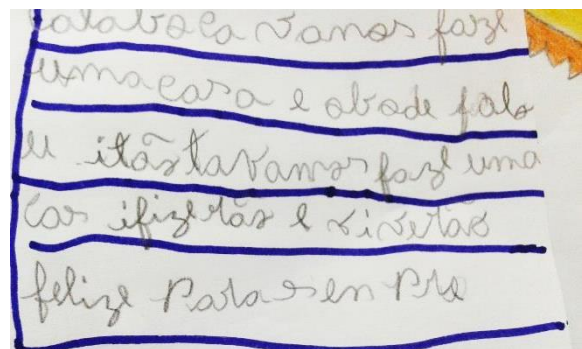 vamos faze
uma casa e abode falo
u itãotavamos faze uma
cas ifizerão e viverão
felize para sen pre